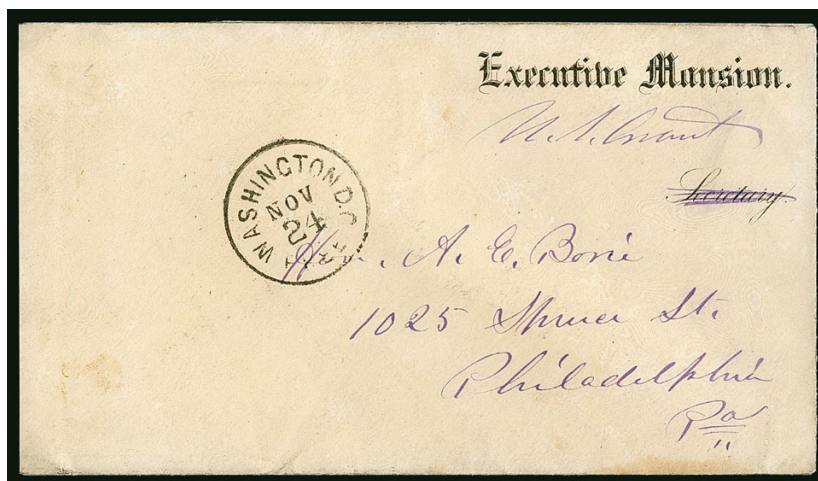 Executive Mansion.
U. S. Grant
Secretary.
WASHINGTON D.C.
NOV
24
FREE
Hon. A. E. Borie
1025 Spruce St.
Philadelphia
Pa